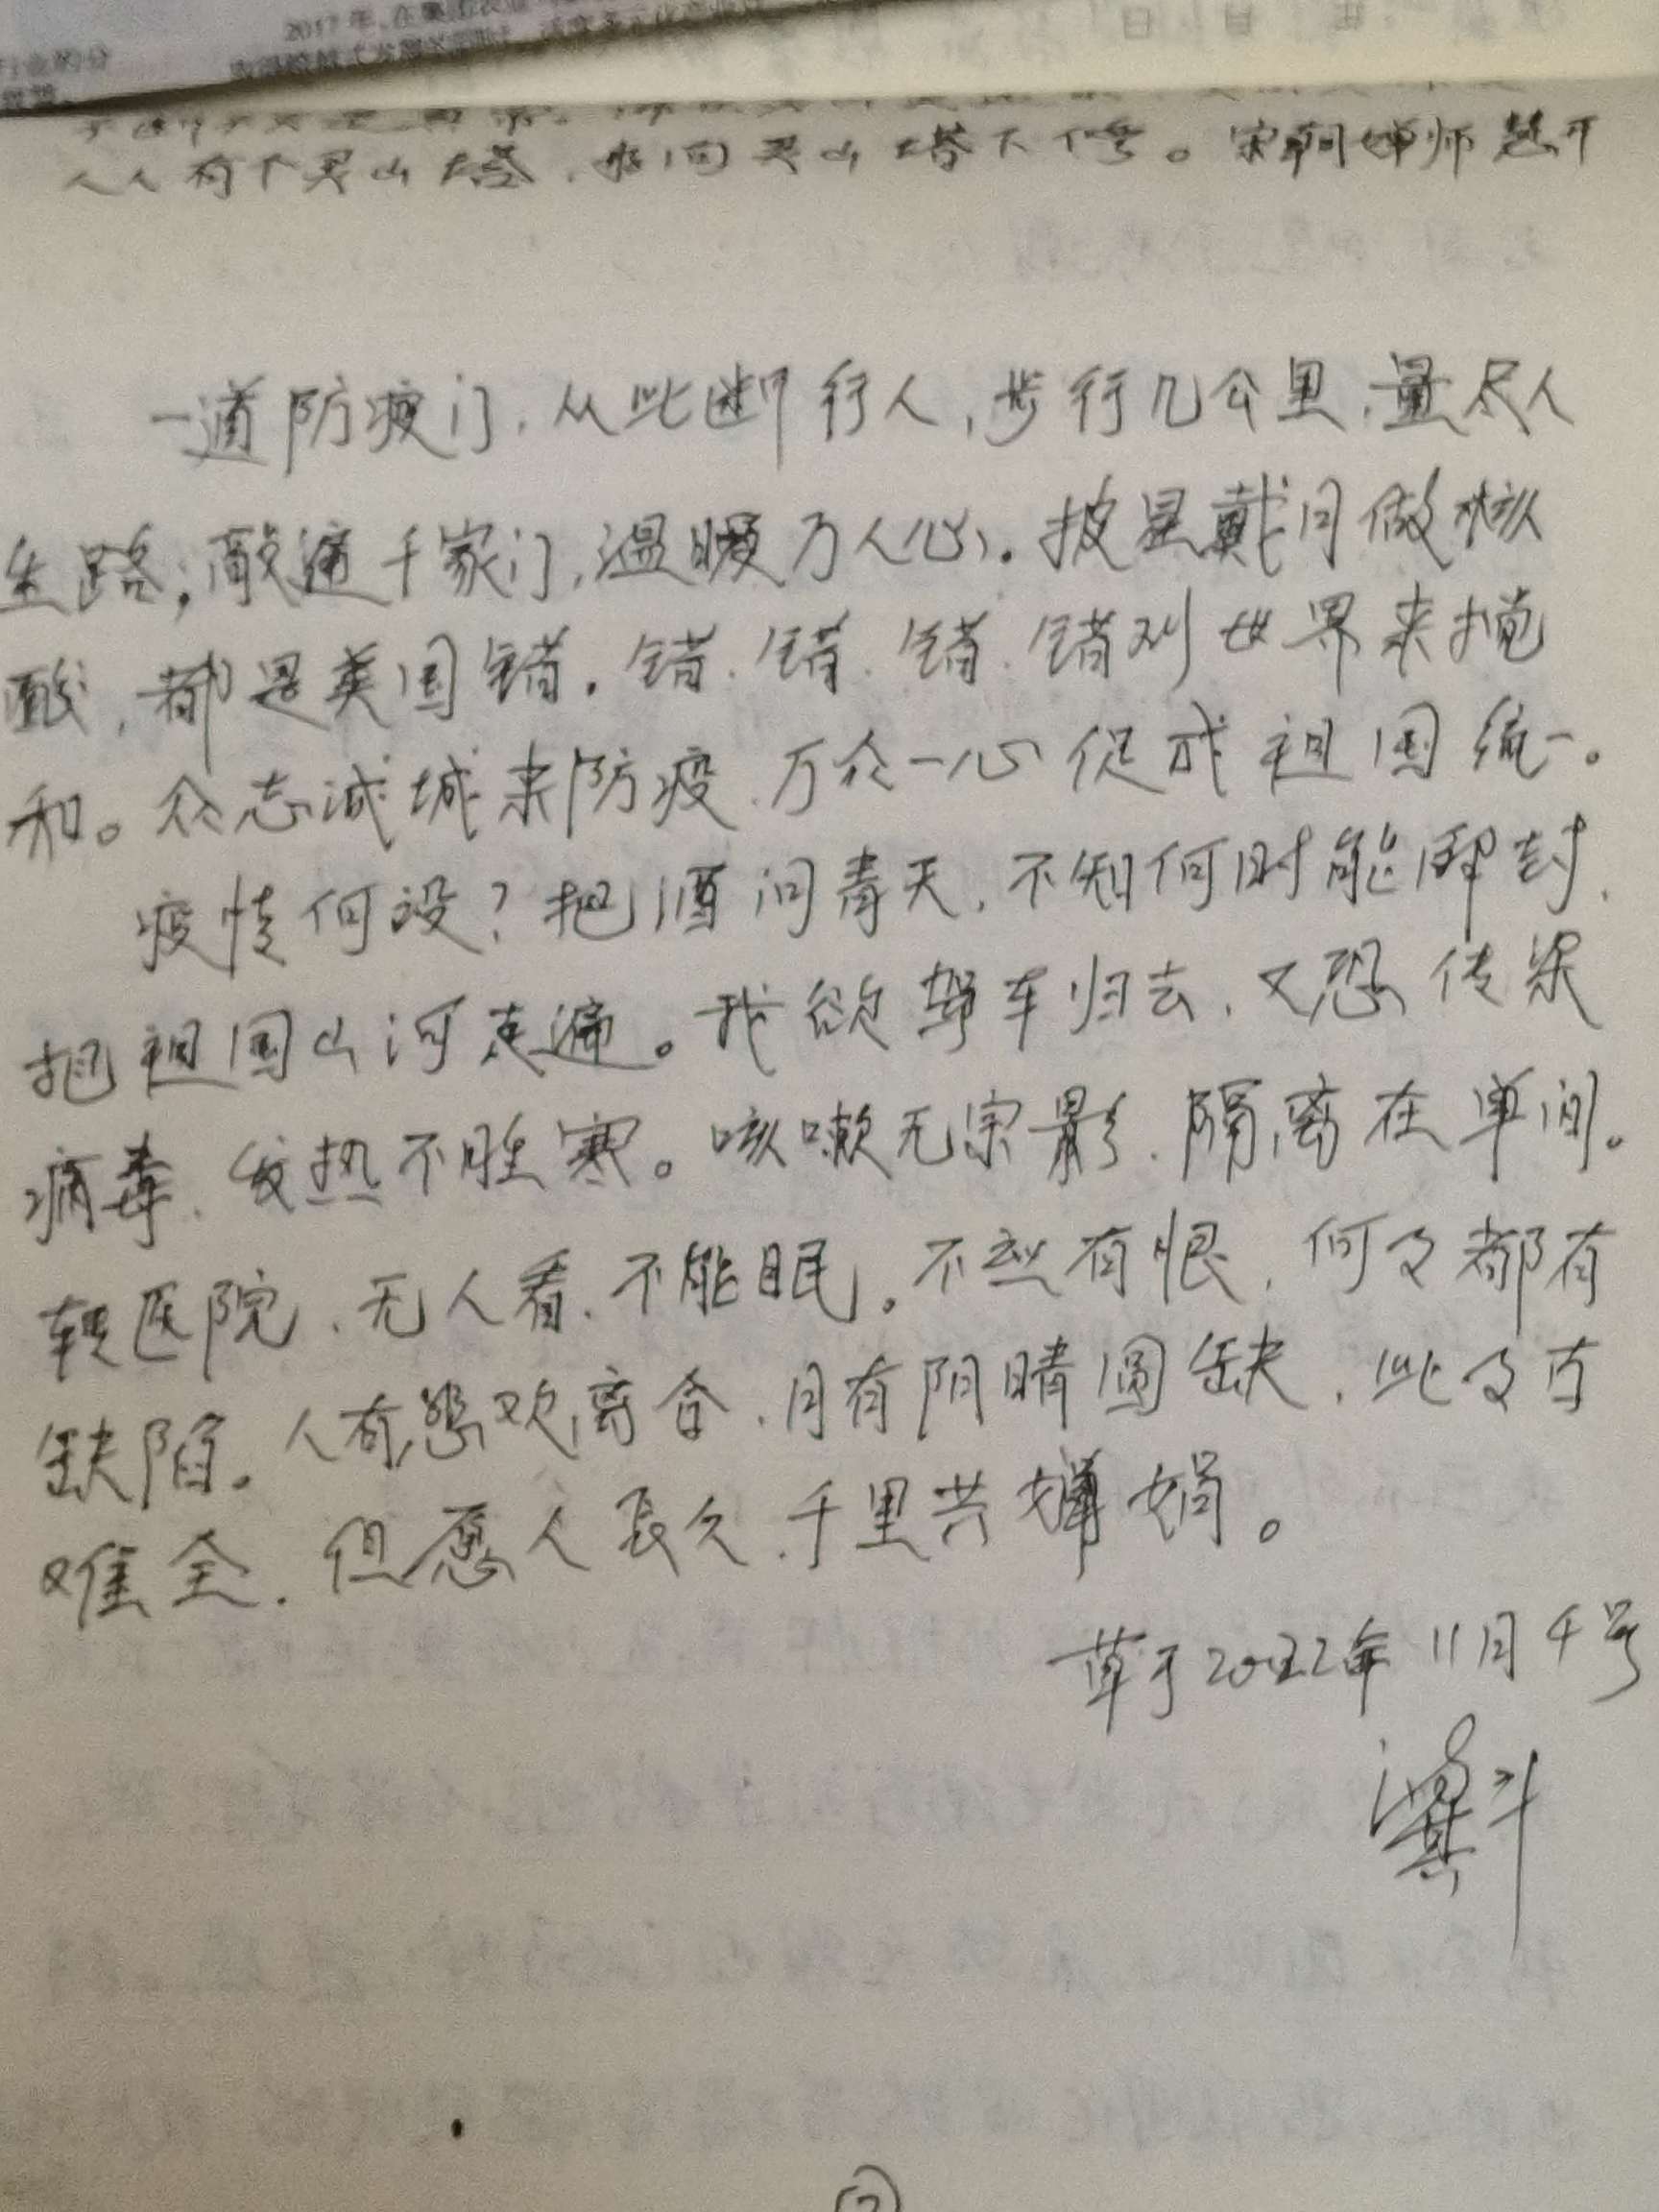 2017年,在集团农业
行业的分
人人有个灵山塔,好向灵山塔下修。宋朝婵师慧开
一道防疫门,从此断行人,步行几公里,量尽人
生路;敲遍千家门,温暖万人心。披星戴月做核
酸,都是美国错。错、错、错、错对世界来掩
和。众志诚城来防疫,万众一心促成祖国统一。
疫情何设?把酒问青天,不知何时能解封,
把祖国山河走遍。我欲驾车归去,又恐传染
病毒、发热不胜寒。咳嗽无宗影,隔离在单间。
转医院、无人看、不能眠。不应有恨,何及都有
缺陷。人有悲欢离合,月有阴晴圆缺,此及古
难全.但愿人长久,千里共婵娟。
草于2022年11月4号